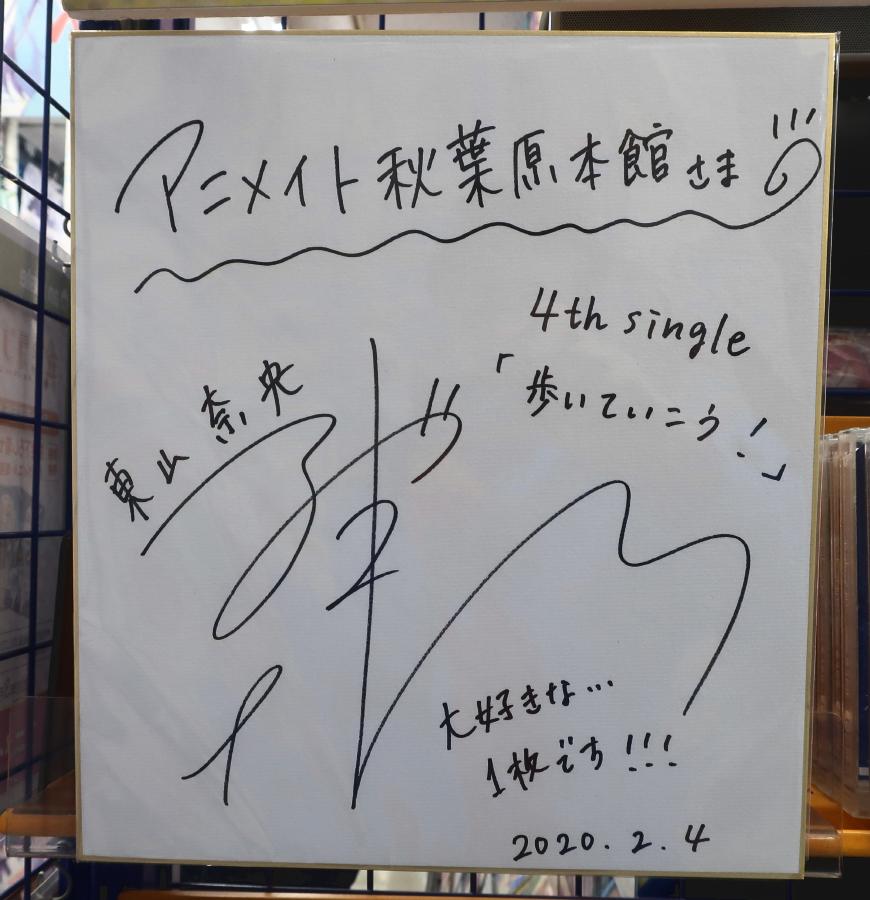 アニメイト秋葉原本館さま
4th single
「歩いていこう！」
東山奈央
大好きな…
1枚です！！！
2020.2.4